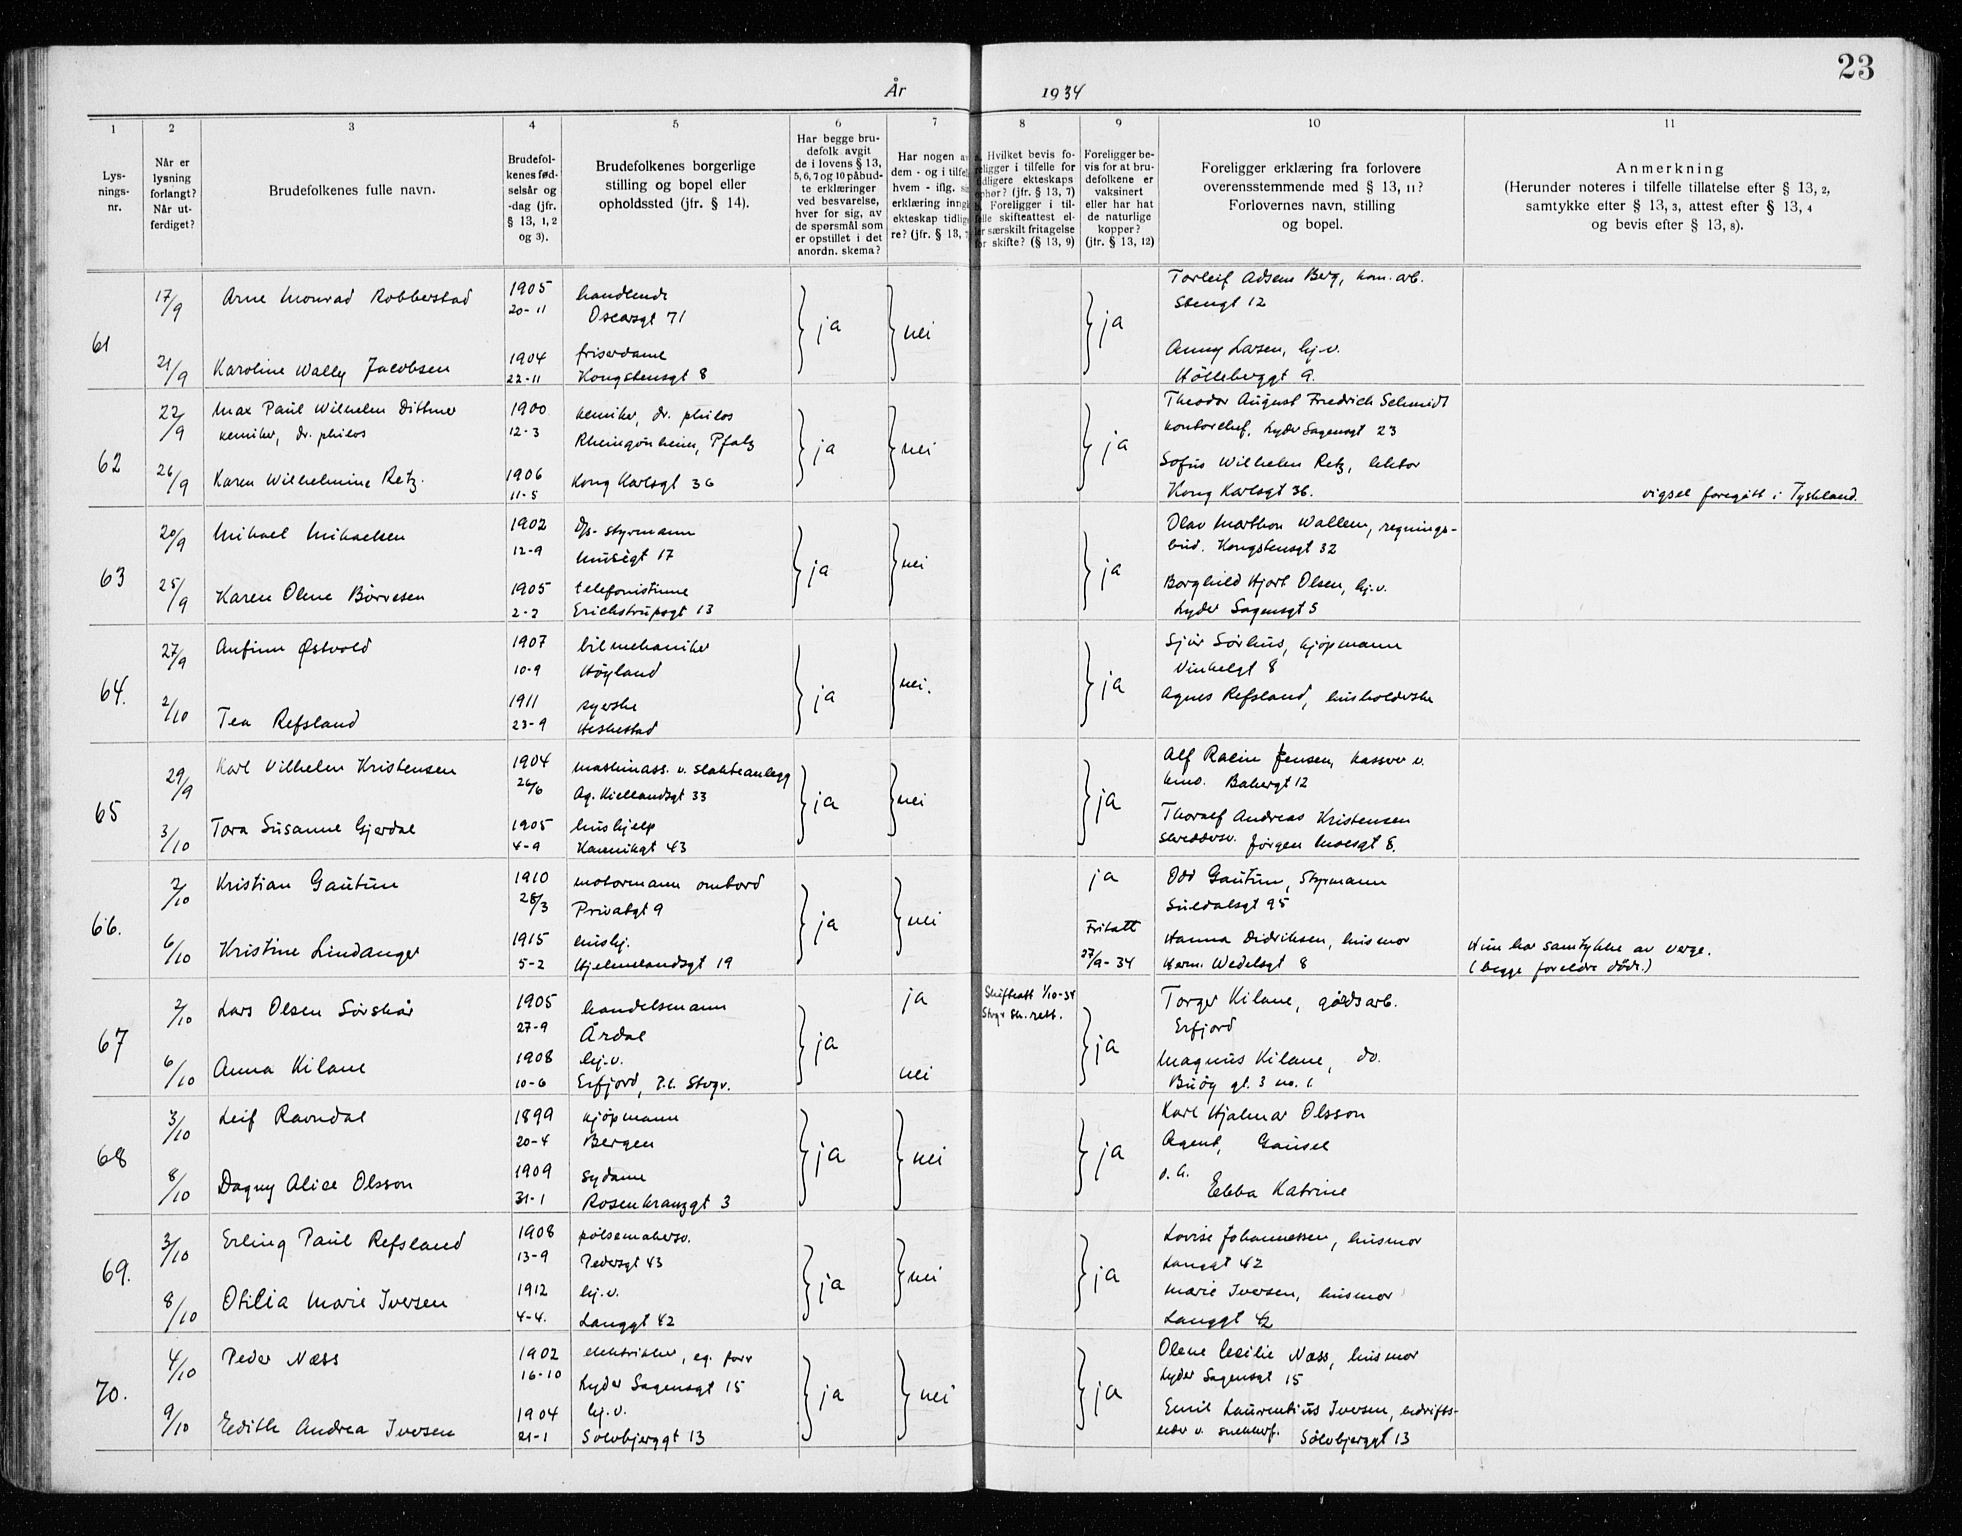 23
År 1934
1 2 3 4 5 6 7 8 9 10 11
Lys-
nings-
nr.
Når er
lysning
forlangt?
Når ut-
ferdiget?
Brudefolkenes fulle navn.
Brudefol-
kenes fød-
selsår og
-dag (jfr.
§ 13, 1, 2
og 3).
Brudefolkenes borgerlige
stilling og bopel eller
opholdssted (jfr. § 14).
Har begge bru-
defolk avgit
de i lovens § 13,
5, 6, 7 og 10 påbud-
te erklæringer
ved besvarelse,
hver for sig, av
de spørsmål som
er opstillet i det
anordn. skema?
Har nogen a
dem - og i tilfel
hvem - iflg.
erklæring inng
ekteskap tidlig
re? (jfr. § 13,
a. Hvilket bevis fo-
religger i tilfelle for
tidligere ekteskaps
ophør? (jfr. § 13, 7)
b. Foreligger i til-
felle skifteattest el-
ler særskilt fritagelse
for skifte? (§ 13, 9)
Foreligger be-
vis for at bru-
defolkene er
vaksinert
eller har hat
de naturlige
kopper?
(jfr. § 13, 12)
Foreligger erklæring fra forlovere
overensstemmende med § 13, 11?
Forlovernes navn, stilling
og bopel.
Anmerkning
(Herunder noteres i tilfelle tillatelse efter § 13, 2,
samtykke efter § 13, 3, attest efter § 13, 4
og bevis efter § 13, 8).
61
17/9 Arne Monrad Robberstad 1905 handlende Torleif Adsen Berg, kom. arb.
20-11 Oscarsgt 71 ja nei ja Stengt 12
21/9 Karoline Wally Jacobsen 1904 friserdame Anny Larsen, hj.v.
22-11 Kongstensgt 8 Hølleberggt 9.
62
22/9 Max Paul Wilhelm Dittmer 1900 kemiker, dr. philos Theodor August Fredrich Schmidt
kemiker, dr. philos 12-3 Rheingönheim, Pfalz ja nei ja kontorchef, Lyder Sagensgt 23
26/9 Karen Wilhelmine Retz. 1906 Kong Karlsgt 36 Sofus Wilhelm Retz, lektor
11-5 Kong Karlsgt 36. vigsel foregått i Tyskland.
63
20/9 Mikael Mikaelsen 1902 D/s- styrmann Olav Marthon Wallem, regnings-
12-9 Musègt 17 ja nei ja bud. Kongstensgt 32
25/9 Karen Olene Børvesen 1905 telefonistinne Borghild Hjort Olsen, hj.v.
2-2 Erichstrupsgt 13 Lyder Sagensgt 5
64.
27/9 Anfinn Østvold 1907 bilmekaniker Sjur Sørhus, kjøpmann
10-9 Høyland ja nei. ja Vinkelgt 8
2/10 Tea Refsland 1911 syerske Agnes Refsland, husholderske
23-9 Heskestad
65
29/9 Karl Vilhelm Kristensen 1904 maskinass. v. slakteanlegg Alf Racin Jensen, kasser v.
26/6 Ag. Kiellandsgt 33 ja nei ja kino. Bakergt 12
3/10 Tora Susanne Gjerdal 1905 hushjelp Thoralf Andreas Kristensen
4-9 Kannikgt 43 skreddersv. Jørgen Moesgt 8.
66.
2/10 Kristian Gautun 1910 motormann ombord ja Odd Gautun, styrmann
28/3 Privatgt 9 ja nei Suldalsgt 95
6/10 Kristine Lindanger 1915 hushj. Fritatt Hanna Didriksen, husmor Hun har samtykke av verge.
5-2 Hjelmelandsgt 19 27/9-34 Herm. Wedelsgt 8 (begge foreldre døde.)
67
2/10 Lars Olsen Sørskår 1905 handelsmann ja Skifteatt 1/10-34 Torger Kilane, gårdsarb.
27-9 Årdal ja Stvgr sk. rett. ja Erfjord
6/10 Anna Kilane 1908 hj.v. nei Magnus Kilane, do.
10-6 Erfjord, p.t. Stvgr. Buøy gt. 3 no. 1
68
3/10 Leif Ravndal 1899 kjøpmann Karl Hjalmar Olsson
20-4 Bergen ja nei ja Agent, Gausel
8/10 Dagny Alice Olsson 1909 sydame o. h.
31-1 Rosenkranzgt 3 Ebba Katrine
69.
3/10 Erling Paul Refsland 1908 pølsemakersv. Lovise Johannessen, husmor
13-9 Pedersgt 43 ja nei ja Langgt 42
8/10 Otilia Marie Iversen 1912 hj.v. Marie Iversen, husmor
4-4. Langgt 42 Langgt 42
70.
4/10 Peder Næss 1902 elektriker, eg. forr Olene Cecilie Næss, husmor
16-10 Lyder Sagensgt 15 ja nei ja Lyder Sagensgt 15
9/10 Edith Andrea Iversen 1904 hj.v. Emil Laurentius Iversen, bedrifts-
21-1 Sølvbjerggt 13 leder v. Sølvbjerggt 13